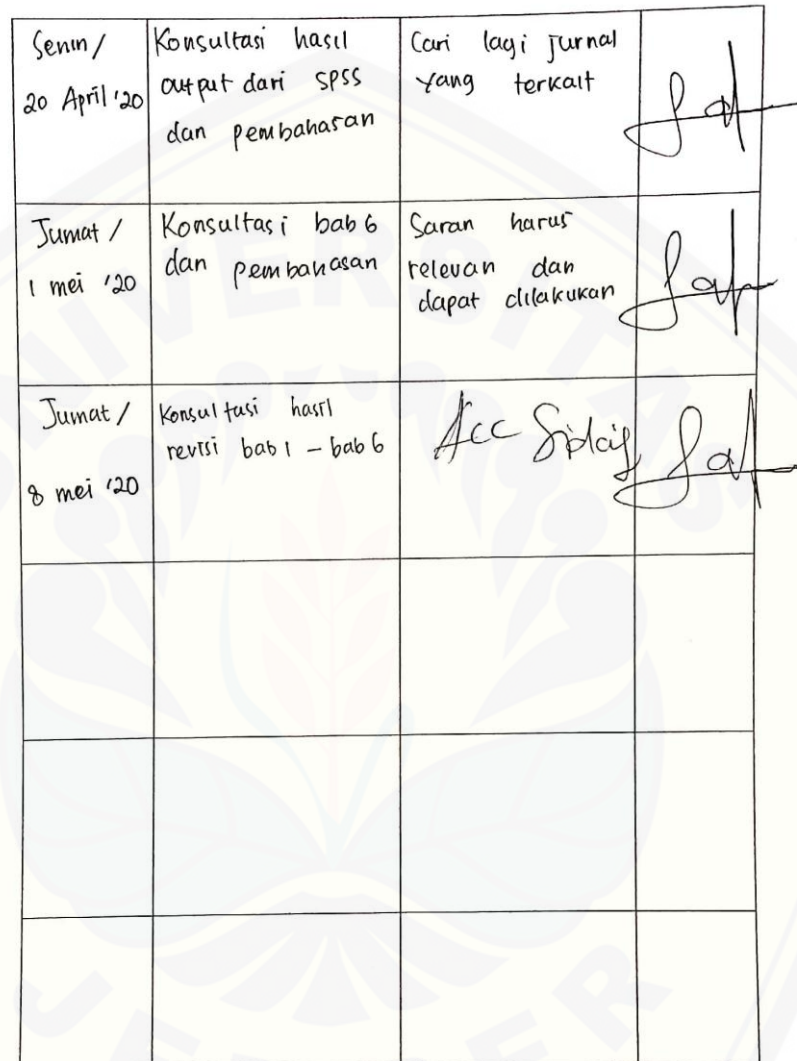 Senin /
20 April '20
Konsultasi hasil
output dari SPSS
dan pembahasan
Cari lagi jurnal
yang terkait
Jumat /
1 mei '20
Konsultasi bab 6
dan pembahasan
Saran harus
relevan dan
dapat dilakukan
Jumat /
8 mei '20
Konsultasi hasil
revisi bab 1 – bab 6
Acc Sidang
UNIVERSITAS
JEMBER